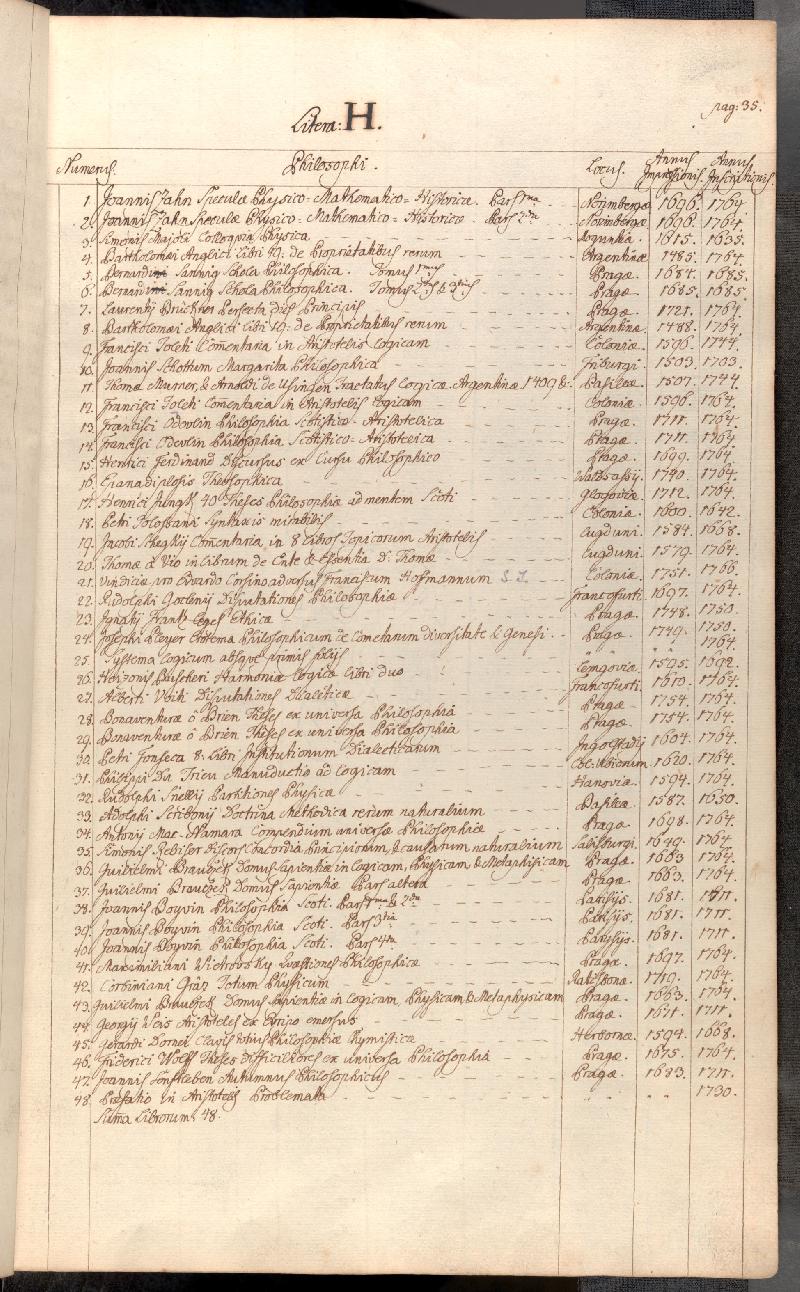 pag: 35.
Litera: H.
Numerus. Philosophi. Locus. Annus Impressionis. Annus Inscriptionis.
1. Joannis Zahn Speculæ Physico-Mathematico-Historicæ. Pars 1ma Norimbergæ 1696. 1764
2. Joannis Zahn Speculæ Physico-Mathematico-Historicæ Pars 2da Norimbergæ 1696. 1764.
3. Simonis Majoli Colloquia Physica Moguntiæ 1615. 1635.
4. Bartholomæi Anglici Libri 19. de Proprietatibus rerum Argentinæ 1485. 1764.
5. Bernardi Sannig Schola Philosophica. Tomus 1mus Pragæ 1684. 1685.
6. Bernardi Sannig Schola Philosophica. Tomus 2dus & 3tius Pragæ 1685. 1685.
7. Laurentii Perfecta dies Principis Pragæ 1721. 1764.
8. Bartholomæi Anglici Libri 19. de Proprietatibus rerum Argentinæ 1488. 1764.
9. Francisci Toleti Comentaria in Aristotelis Logicam Coloniæ 1596. 1744.
10. Joannis Schottum Margarita Philosophica Friburgi 1503. 1703.
11. Thomæ Murner, & Arnoldi de Usingen Tractatus Logicæ. Argentinæ Basileæ 1507. 1744.
12. Francisci Toleti Comentaria in Aristotelis Logicam Coloniæ 1596. 1764.
13. Francisci Odevlin Philosophia Scotistico-Aristotelica Pragæ 1711. 1764.
14. Francisci Odevlin Philosophia Scotistico-Aristotelica Pragæ 1711. 1764
15. Henrici Ferdinand Discursus ex Cursu Philosophico Pragæ 1699. 1764
16. Theosophica Waldsassij 1740. 1764.
17. Henrici Jungk 40 Theses Philosophiæ ad mentem Scoti Glogoviæ 1712. 1764.
18. Petri Tolossani Syntaxis mirabilis Coloniæ 1600. 1642.
19. Jacobi Shegkij Comentaria in 8 Libros Topicorum Aristotelis Lugduni 1584. 1668.
20. Thomæ a Vio in librum de Ente & Essentia D: Thomæ Lugduni 1579. 1764.
21. Vindiciæ pro Edvardo Corsino adversus Franciscum Hofmannum S I. Coloniæ 1751. 1766.
22. Rudolphi Goclenij Disputationes Philosophiæ Francofurti 1697. 1764.
23. Ignatij Frantz Leges Ethicæ Pragæ 1748. 1750.
24. Josephi Payer Erotema Philosophicum de Cometarum diversitate & genesi Pragæ 1749. 1750.
25. Systema Logicum absque primis folijs " " " " 1764.
26. Heizonis Buscheri Harmoniæ Logicæ libri duo Lemgoviæ 1595. 1692.
27. Alberti Voiti Disputationes Dialecticæ Francofurti 1610. 1764.
28. Bonaventuræ ô Brien Theses ex universa Philosophia Pragæ 1754. 1764.
29. Bonaventuræ ô Brien Theses ex universa Philosophia Pragæ 1754. 1764.
30. Petri Fonseca 8. Libri Institutionum Dialecticarum Ingolstadij 1604. 1764.
31. Philippi Du Trieu Manuductio ad Logicam Col: Ubiorum 1620. 1764.
32. Rudolphi Snellij Partitiones Physicæ Hanoviæ 1594. 1764.
33. Adolphi Scribonij Doctrina Methodica rerum naturalium Basileæ 1587. 1650.
34. Antonij Mac-Namara Compendium universæ Philosophiæ Pragæ 1698. 1764.
35. Simonis Rebiser Discors Concordia Principiorum, & causarum naturalium Salisburgi 1649. 1764
36. Guilielmi Brautzek Domus Sapientiæ in Logicam, Physicam, & Metaphysicam Pragæ. 1663 1764.
37. Guilielmi Brautzek Domus Sapientiæ Pars altera Pragæ 1663. 1764.
38. Joannis Boyvin Philosophia Scoti. Pars 1ma & 2da Parisijs. 1681. 1711.
39. Joannis Boyvin Philosophia Scoti. Pars 3tia Parisijs. 1681. 1711.
40. Joannis Boyvin Philosophia Scoti. Pars 4ta Parisijs. 1681. 1711.
41. Maximiliani Wietrowsky Quæstiones Philosophicæ Pragæ 1697. 1764.
42. Corbiniani Gräz Totum Physicum Ratisbonæ 1719. 1764.
43. Guilielmi Brautzek Domus Sapientiæ in Logicam, Physicam, & Metaphysicam Pragæ. 1663. 1764.
44. Georgij Weis Aristoteles ex Euripo emersus Pragæ. 1671. 1711.
45. Gerardi Dornei Clavis totius Philosophiæ Chymisticæ Herbornæ 1594. 1668.
46. Friderici Wolff Theses difficiliores ex universa Philosophia Pragæ. 1675. 1764.
47. Joannis Senftleben Autumnus Philosophicus Pragæ. 1683. 1711.
48. Præfatio in Aristotelis Problemata " " " " 1730.
Suma Librorum 48.